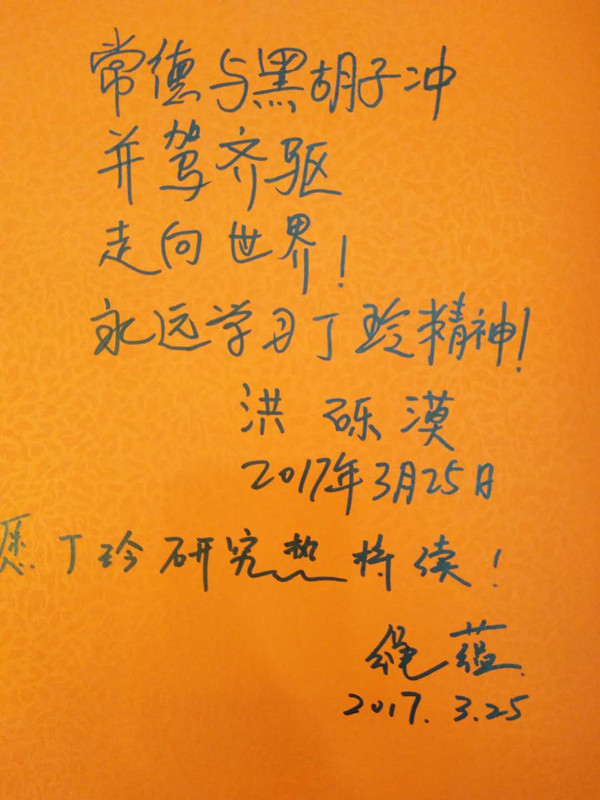 常德与黑胡子冲
并驾齐驱
走向世界!
永远学习丁玲精神!
洪砾漠
2017年3月25日
愿丁玲研究热持续!
绳蕴
2017.3.25